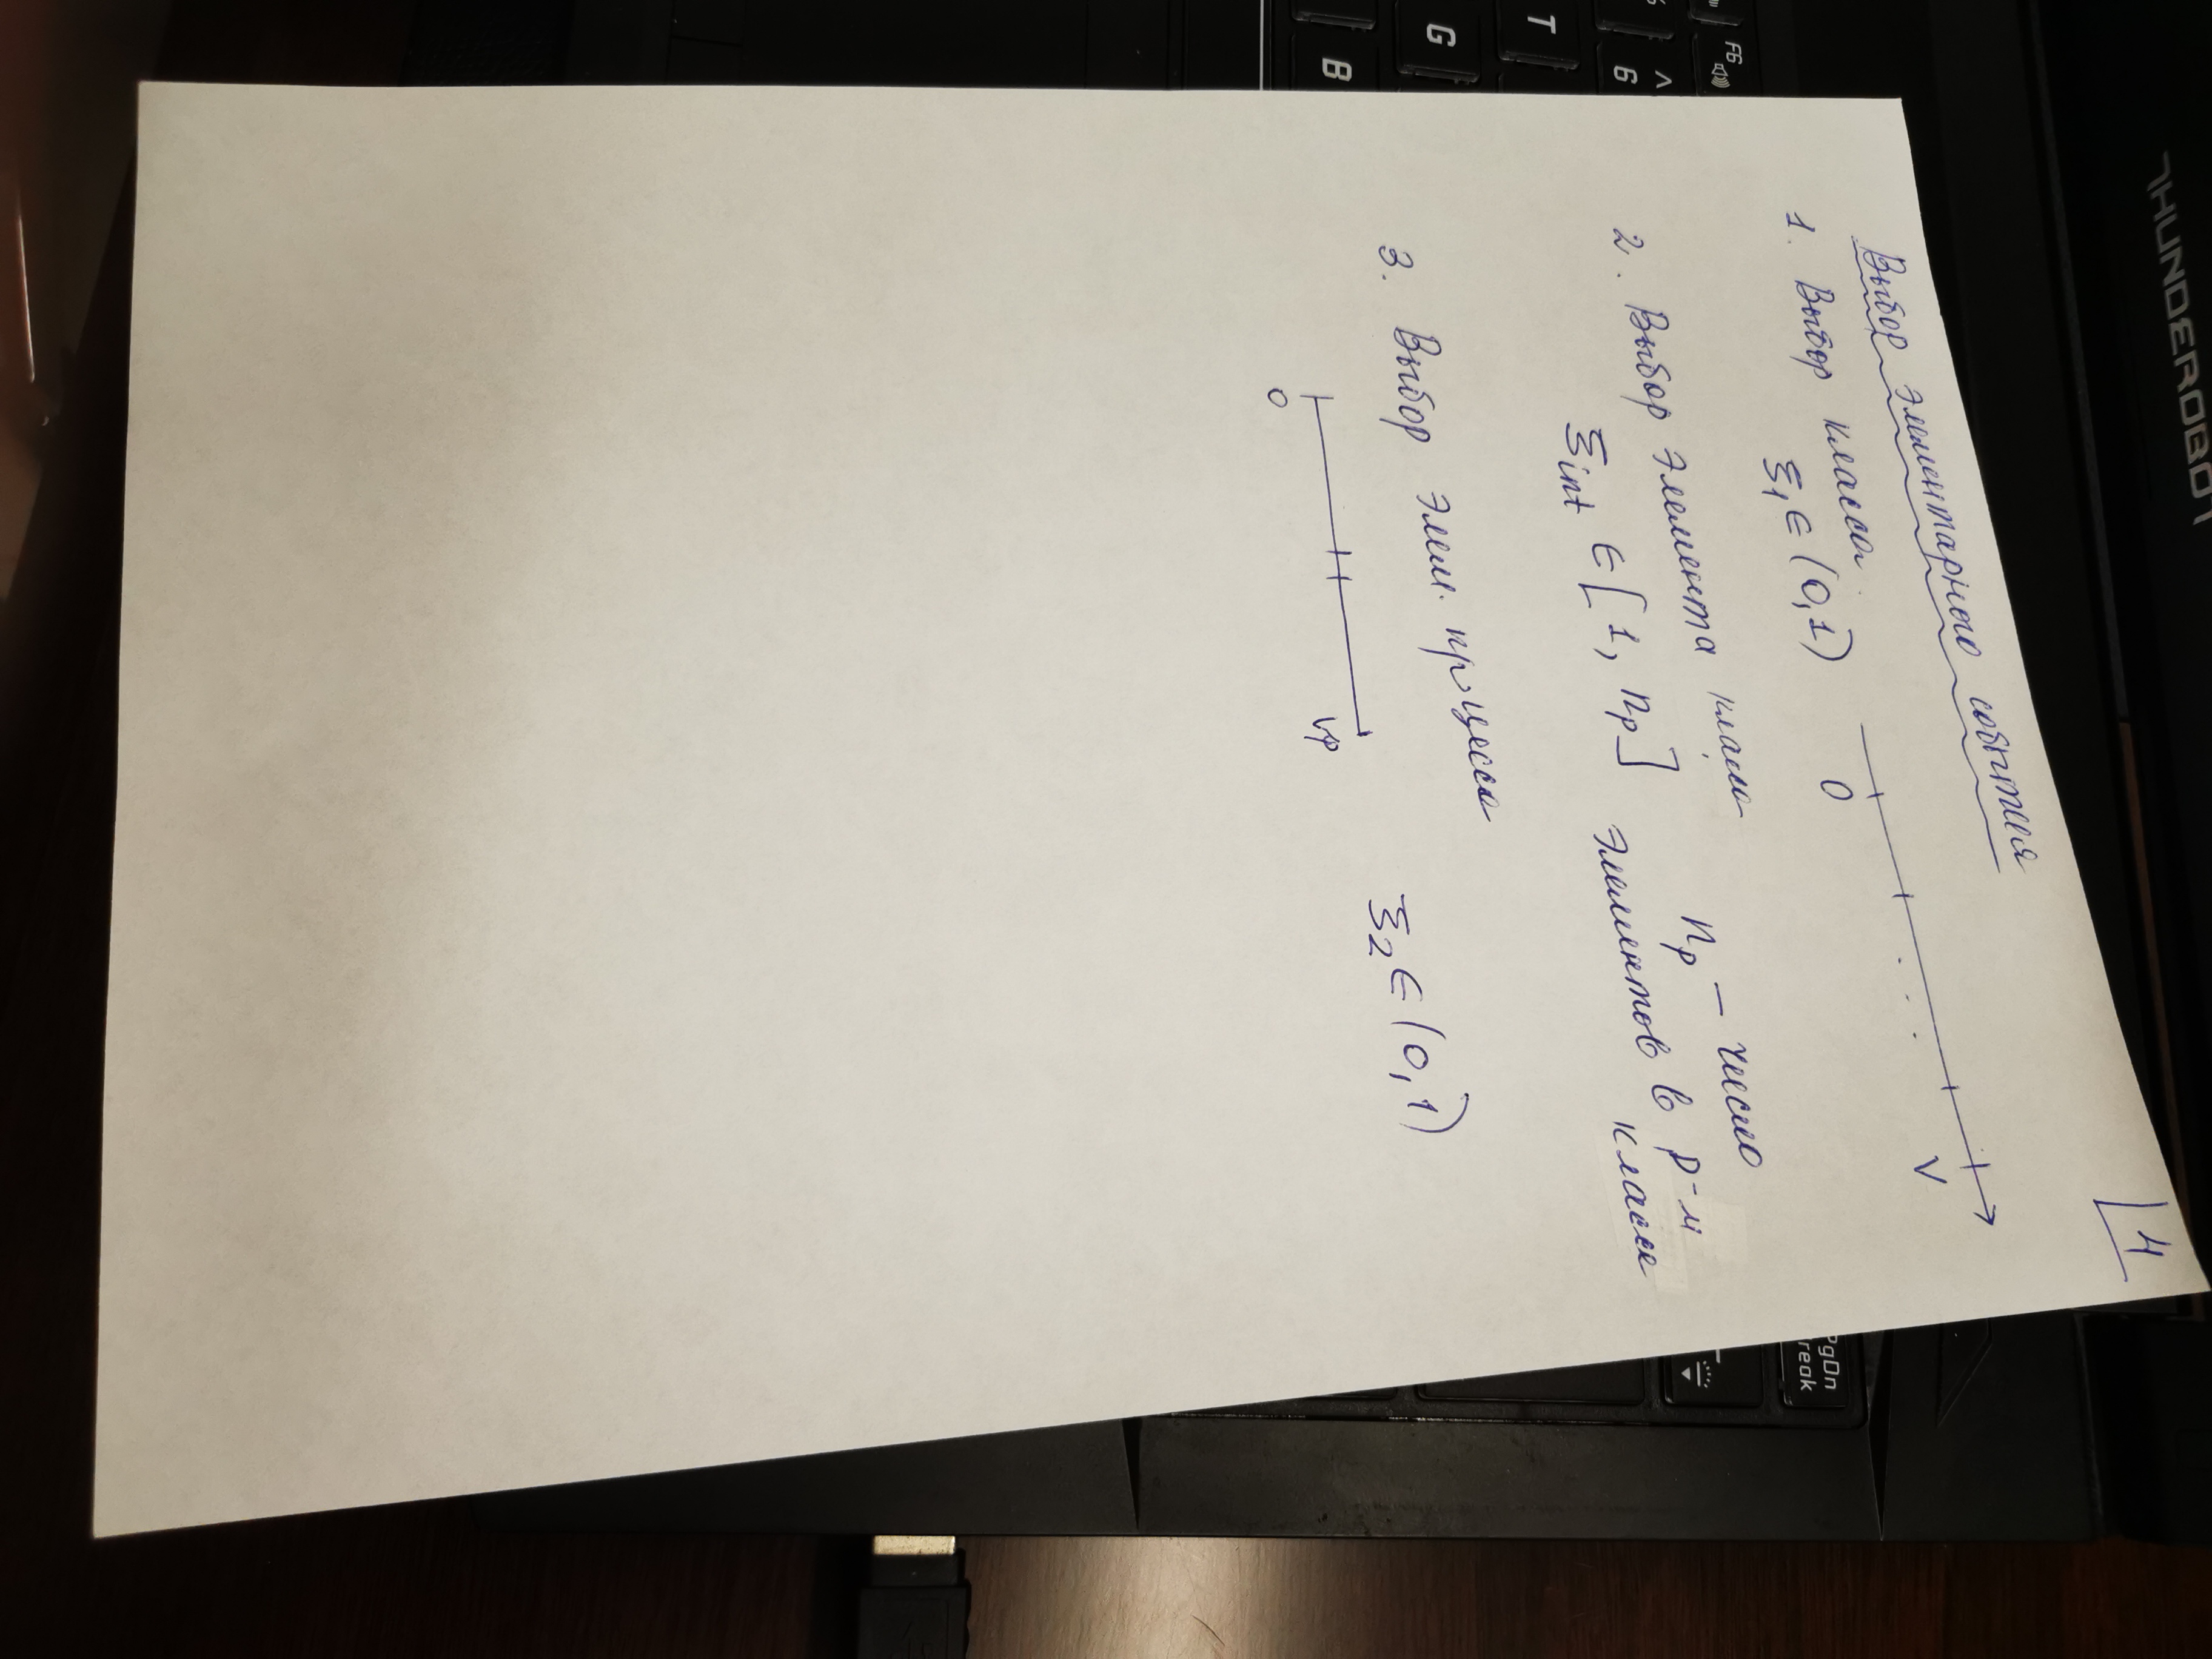 THUNDEROBOT
4
Выбор элементарного события
1. Выбор класса
ξ₁ ∈ (0,1)
0 ... V
2. Выбор элемента класса
ξint ∈ [1, np]
np – число
элементов в p-м
классе
3. Выбор элем. процесса
ξ₂ ∈ (0,1)
0 Vp
PgDn
Break
F6
^
6
T
G
B